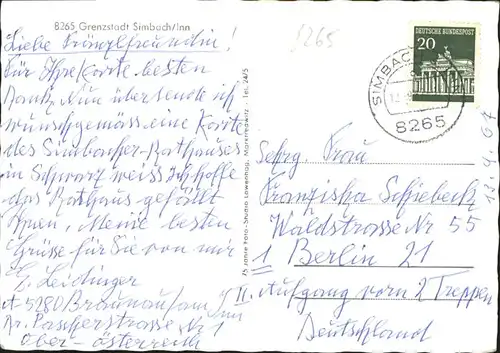 8265 Grenzstadt Simbach/Inn
Liebe Prinzlfreundin!
Für Ihre Karte besten
Dank. Nun übersende ich
wunschgemäss eine Karte
des Simbacher-Rathauses
in Schwarz weiss Ich hoffe
das Rathaus gefällt
Ihnen, Meine besten
Grüsse für Sie von mir
G. Leidinger
A 5280 Braunau/am Inn
Dr. Pascherstrasse Nr 1
Ober-Österreich
75 Jahre Foto-Studio Löwenhag, Marienbowitz Tel. 24/5
8265
DEUTSCHE BUNDESPOST
20
SIMBACH
8265
13.9.67
Sehrg. Frau
Franziska Schiebeck
Waldstrasse Nr 55
1 Berlin 21
II. Aufgang vorn 2 Treppen
Deutschland